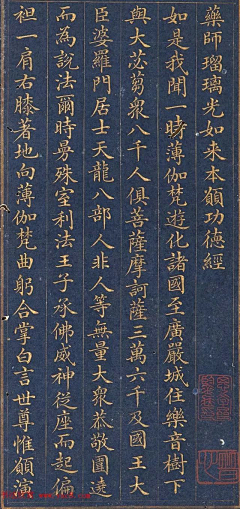 藥師瑠璃光如来本願功德經
如是我聞一時薄伽梵遊化諸國至廣嚴城住樂音樹下
與大苾芻衆八千人俱菩薩摩訶薩三萬六千及國王大
臣婆羅門居士天龍八部人非人等無量大衆恭敬圍遶
而為說法爾時曼殊室利法王子承佛威神從座而起偏
袒一肩右膝著地向薄伽梵曲躬合掌白言世尊惟願演